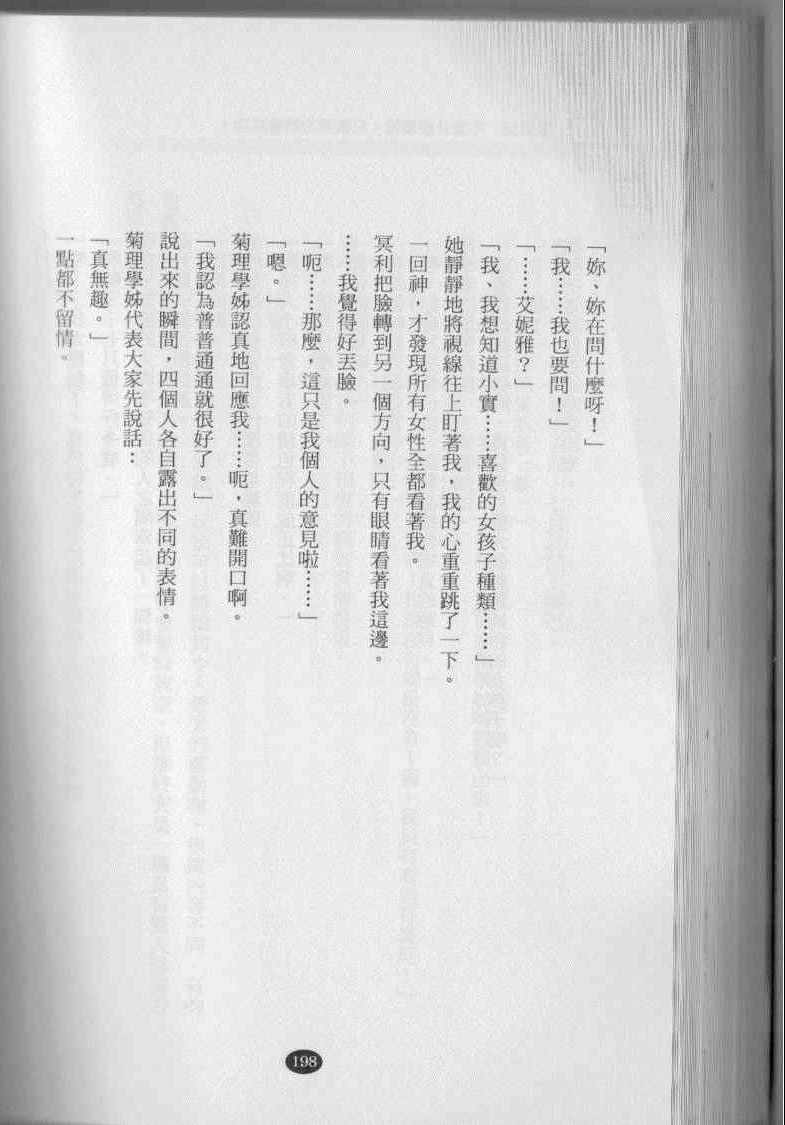 「妳、妳在問什麼呀！」
「我……我也要問！」
「……艾妮雅？」
「我、我想知道小實……喜歡的女孩子種類……」
她靜靜地將視線往上盯著我，我的心重重跳了一下。
一回神，才發現所有女性全都看著我。
冥利把臉轉到另一個方向，只有眼睛看著我這邊。
……我覺得好丟臉。
「呃……那麼，這只是我個人的意見啦……」
「嗯。」
菊理學姊認真地回應我……呃，真難開口啊。
「我認為普普通通就很好了。」
說出來的瞬間，四個人各自露出不同的表情。
菊理學姊代表大家先說話：
「真無趣。」
一點都不留情。
198